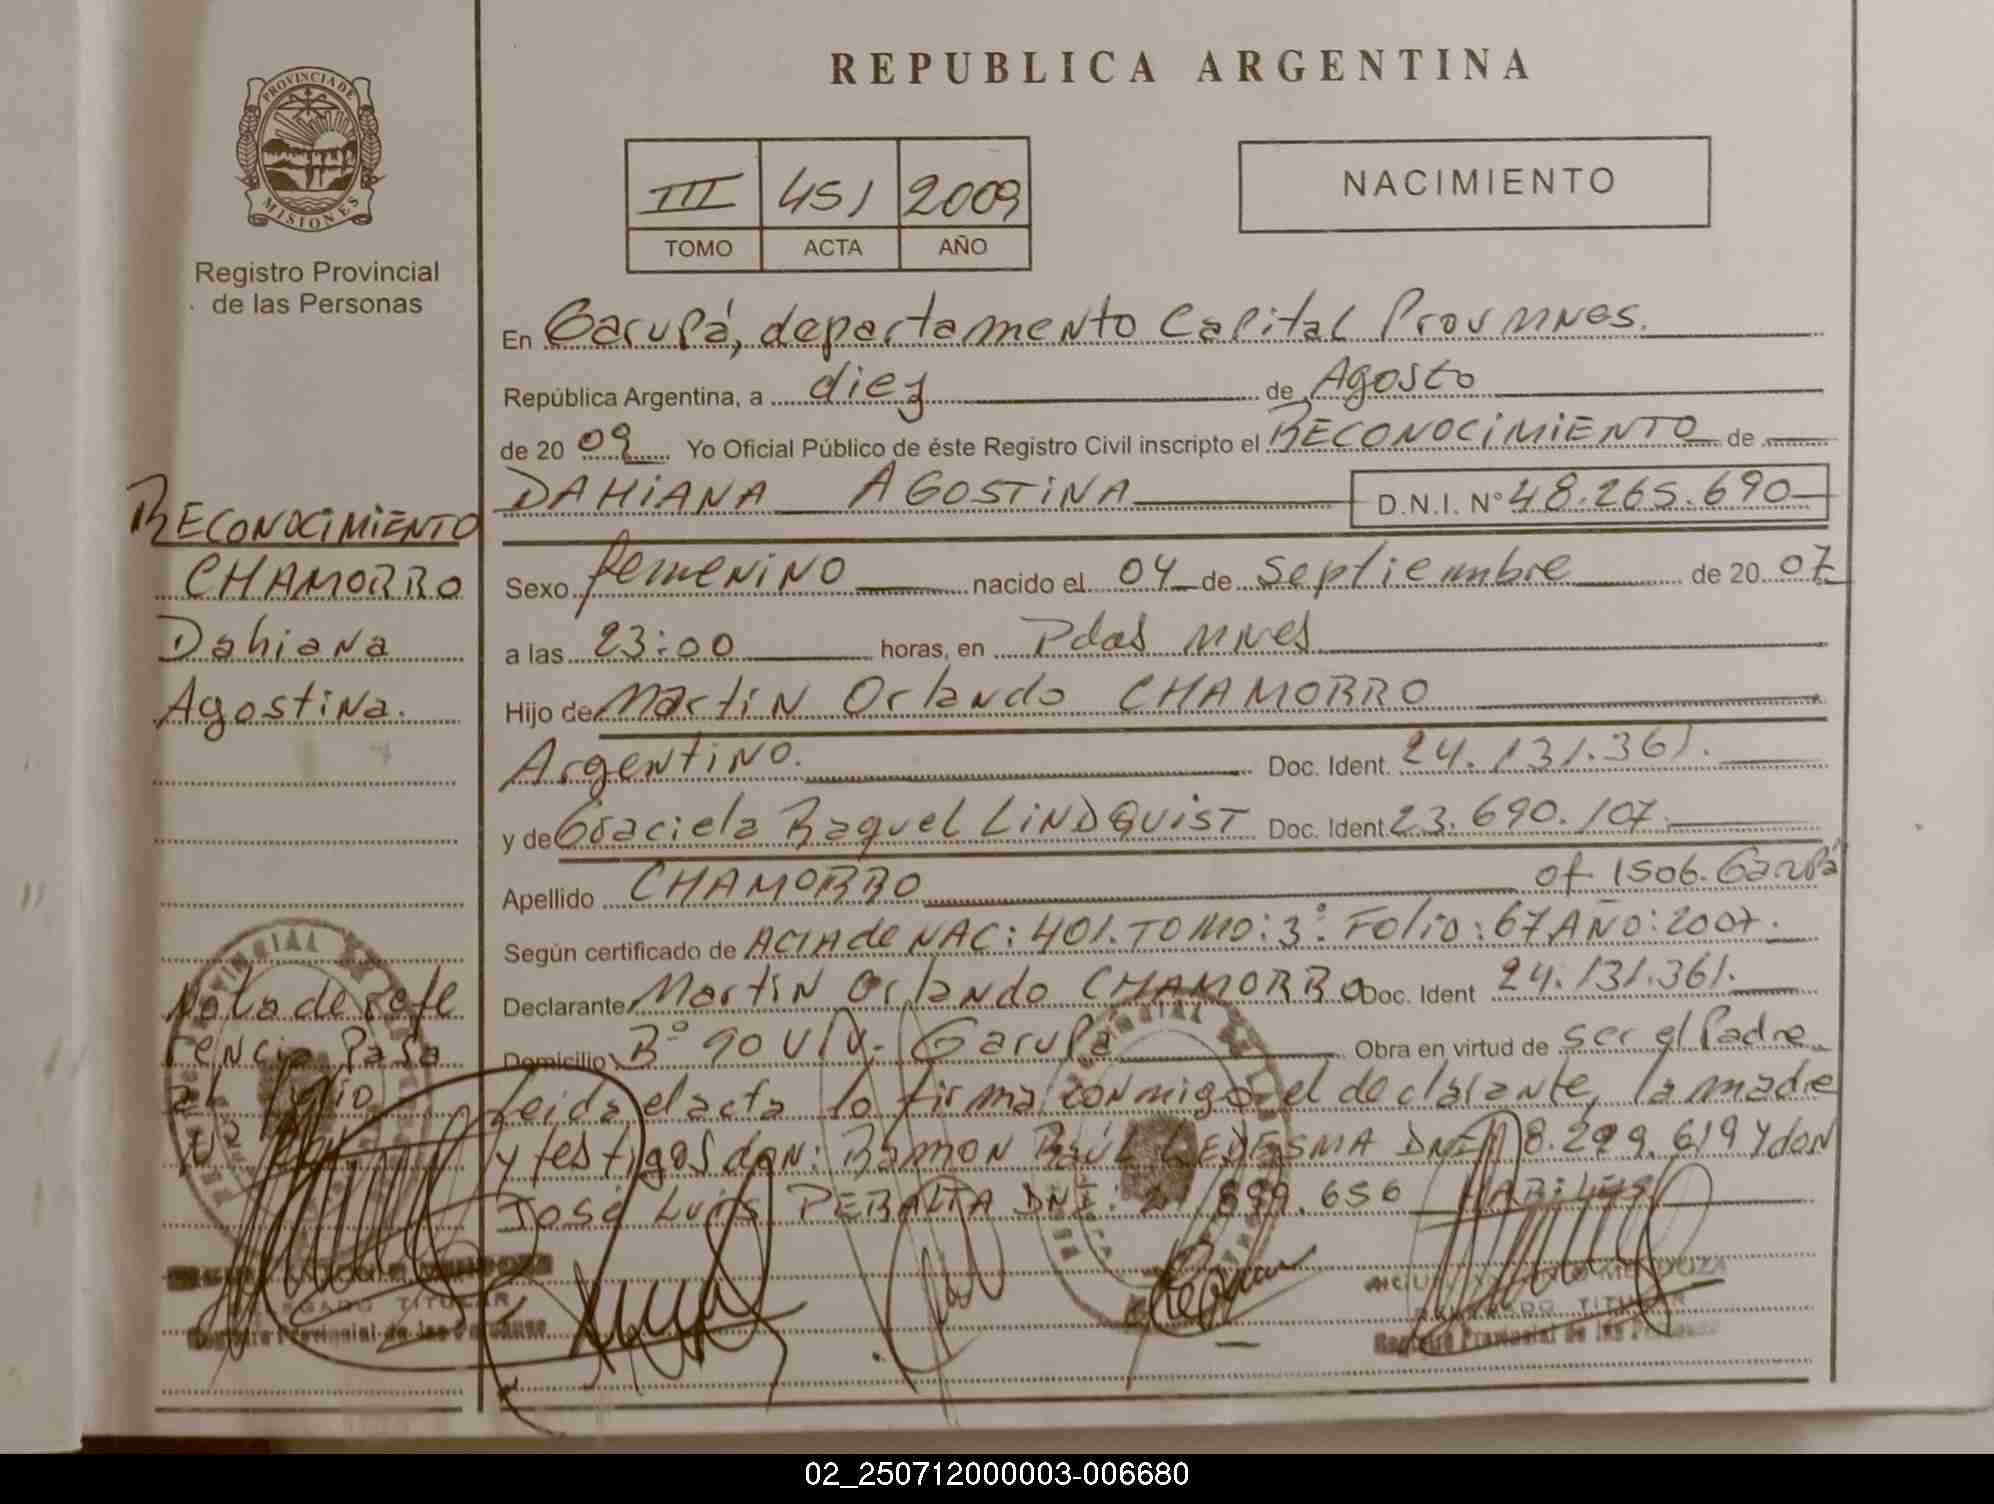 REPUBLICA ARGENTINA
PROVINCIA DE
MISIONES
Registro Provincial
de las Personas
III 451 2009
TOMO ACTA AÑO
NACIMIENTO
En Garupá, departamento Capital Prov Mnes.
República Argentina, a diez de Agosto
de 20 09 Yo Oficial Público de éste Registro Civil inscripto el RECONOCIMIENTO de
DAHIANA AGOSTINA D.N.I. Nº 48.265.690
RECONOCIMIENTO
CHAMORRO
Dahiana
Agostina.
Sexo femenino nacido el 04 de septiembre de 20 07
a las 23:00 horas, en Pdas Mnes
Hijo de Martin Orlando CHAMORRO
Argentino. Doc. Ident. 24.131.361.
y de Graciela Raquel LINDQUIST Doc. Ident. 23.690.107.
Apellido CHAMORRO of 1506. Garupá
Según certificado de Acta de NAC: 401. TOMO: 3º Folio: 67 AÑO: 2007.
Declarante Martin Orlando CHAMORRO Doc. Ident 24.131.361.
Domicilio Bº 90 Viv. Garupá Obra en virtud de ser el Padre
Leida el acta lo firma conmigo el declarante, la madre
y testigos don: Ramon Raúl LEDESMA DNI 18.299.619 y don
José Luis PERALTA DNI: 21.899.656
Nota de refe
rencia Pasa
al folio
DELEGADO TITULAR
Registro Provincial de las Personas
MENDOZA
DELEGADO TITULAR
Registro Provincial de las Personas
02_250712000003-006680